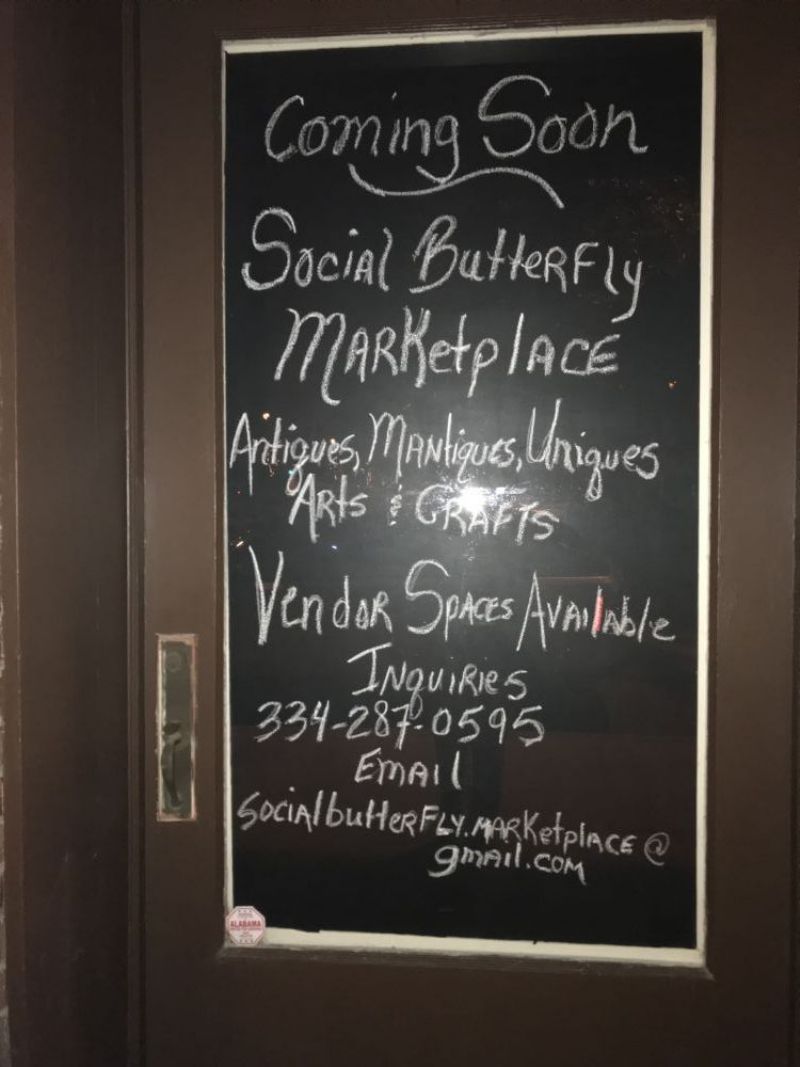 Coming Soon
Social Butterfly
Marketplace
Antiques, Mantiques, Uniques
Arts & Crafts
Vendor Spaces Available
Inquiries
334-287-0595
Email
socialbutterfly.marketplace@
gmail.com
ALABAMA